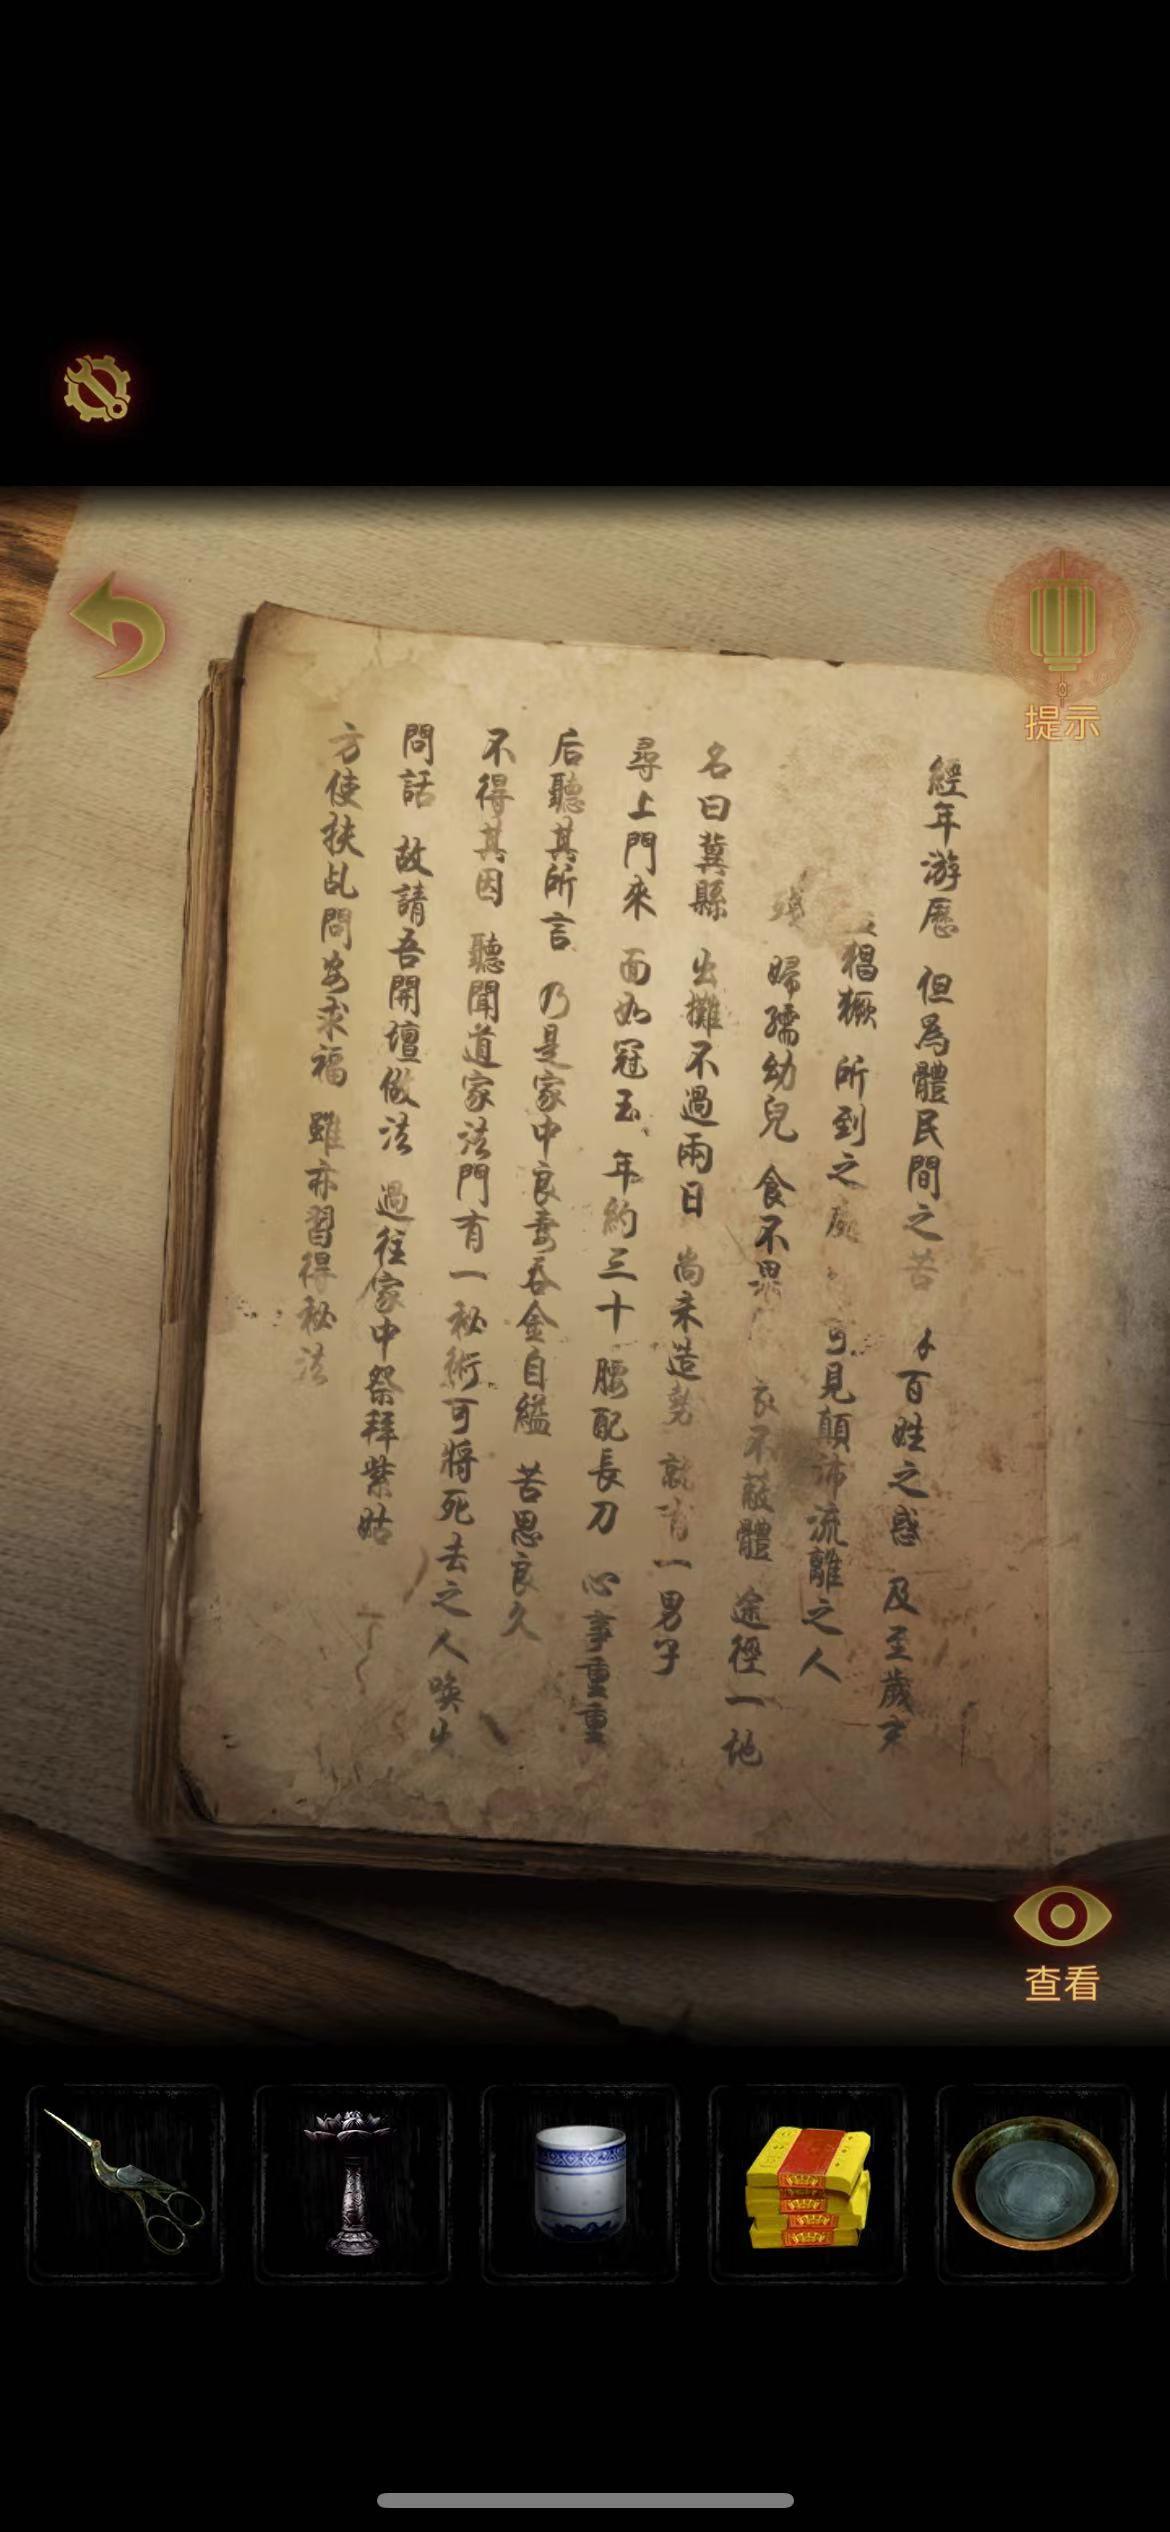 提示
經年游歷 但為體民間之苦 百姓之惑 及至歲末
猖獗 所到之處 可見顛沛流離之人
殘 婦孺幼兒 食不果 衣不蔽體 途徑一地
名曰冀縣 出攤不過兩日 尚未造勢 就有一男子
尋上門來 面如冠玉 年約三十 腰配長刀 心事重重
后聽其所言 乃是家中良妻吞金自縊 苦思良久
不得其因 聽聞道家法門有一秘術可將死去之人喚出
問話 故請吾開壇做法 過往家中祭拜紫姑
方使扶乩問安求福 雖亦習得秘法
查看